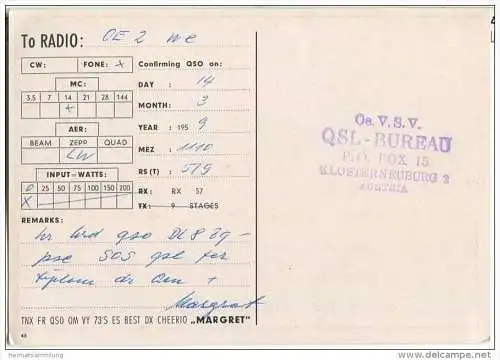 To RADIO: OE 2 we
CW: FONE: x Confirming QSO on:
MC: DAY : 14
3.5 7 14 21 28 144
x MONTH: 3
AER: YEAR : 195 9
BEAM ZEPP QUAD
LW MEZ : 1110
INPUT-WATTS: RS(T) : 579
0 25 50 75 100 150 200
X RX : RX 57
TX: 9 STAGES
REMARKS:
hr hrd qso DL8
pse SOS qsl for
diplom dr om +
Margret
TNX FR QSO OM VY 73'S ES BEST DX CHEERIO „MARGRET"
Oe. V. S. V.
QSL-BUREAU
P.O. BOX 15
KLOSTERNEUBURG 2
AUSTRIA